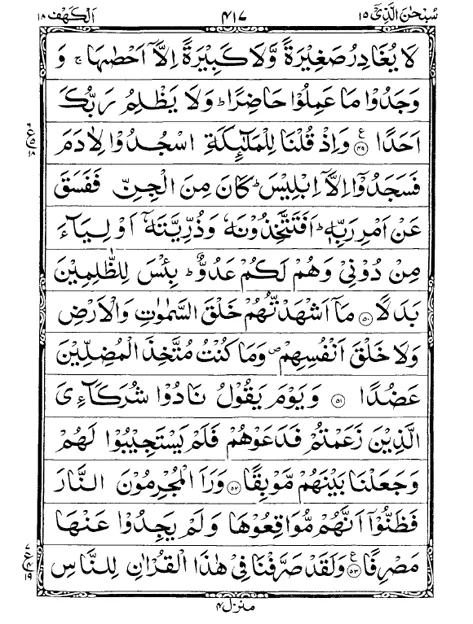 سبحٰن الذیٓ ۱۵ ۴۱۷ الکهف ۱۸
لَا يُغَادِرُ صَغِيْرَةً وَّلَا كَبِيْرَةً اِلَّاۤ اَحْصٰىهَا ۚ وَ
وَجَدُوْا مَا عَمِلُوْا حَاضِرًا ؕ وَلَا يَظْلِمُ رَبُّكَ
اَحَدًا ۴۹ وَاِذْ قُلْنَا لِلْمَلٰٓئِكَةِ اسْجُدُوْا لِاٰدَمَ
فَسَجَدُوْۤا اِلَّاۤ اِبْلِيْسَ ؕ كَانَ مِنَ الْجِنِّ فَفَسَقَ
عَنْ اَمْرِ رَبِّهٖ ؕ اَفَتَتَّخِذُوْنَهٗ وَذُرِّيَّتَهٗۤ اَوْلِيَآءَ
مِنْ دُوْنِيْ وَهُمْ لَكُمْ عَدُوٌّ ؕ بِئْسَ لِلظّٰلِمِيْنَ
بَدَلًا ۵۰ مَاۤ اَشْهَدْتُّهُمْ خَلْقَ السَّمٰوٰتِ وَالْاَرْضِ
وَلَا خَلْقَ اَنْفُسِهِمْ ۪ وَمَا كُنْتُ مُتَّخِذَ الْمُضِلِّيْنَ
عَضُدًا ۵۱ وَيَوْمَ يَقُوْلُ نَادُوْا شُرَكَآءِيَ
الَّذِيْنَ زَعَمْتُمْ فَدَعَوْهُمْ فَلَمْ يَسْتَجِيْبُوْا لَهُمْ
وَجَعَلْنَا بَيْنَهُمْ مَّوْبِقًا ۵۲ وَرَاَ الْمُجْرِمُوْنَ النَّارَ
فَظَنُّوْۤا اَنَّهُمْ مُّوَاقِعُوْهَا وَلَمْ يَجِدُوْا عَنْهَا
مَصْرِفًا ۵۳ وَلَقَدْ صَرَّفْنَا فِيْ هٰذَا الْقُرْاٰنِ لِلنَّاسِ
منزل ۴